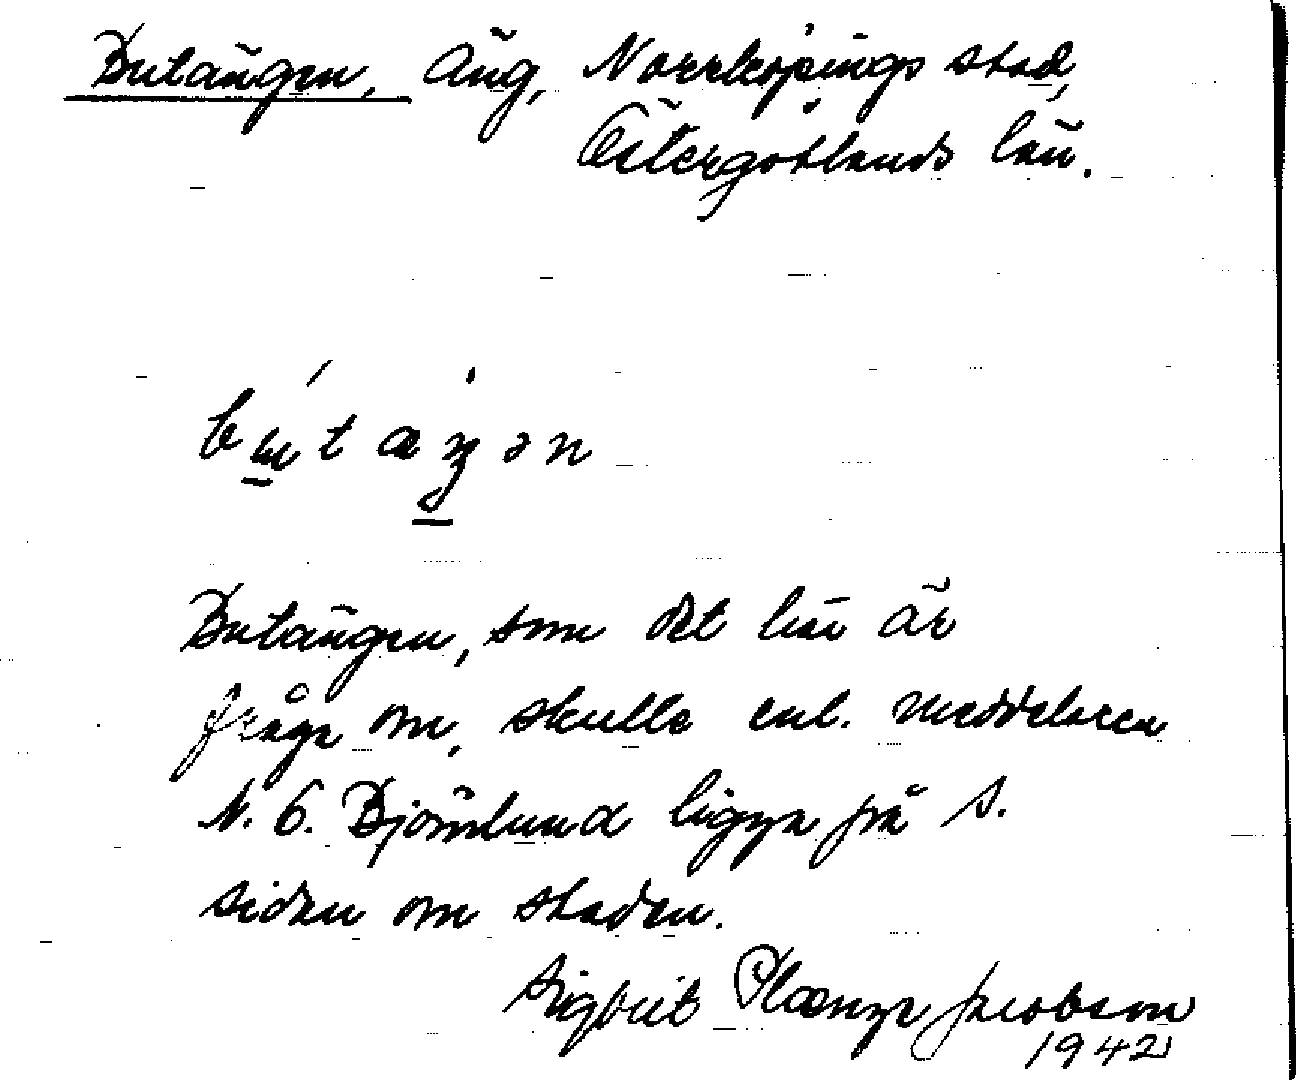 Butängen, äng, Norrköpings stad,
Östergötlands län.
Butängen, som det här är
fråga om, skulle enl. meddelaren
N. G. Björnlund ligga på S.
sidan om staden.
Sigbrit Plænge Jacobson
1942